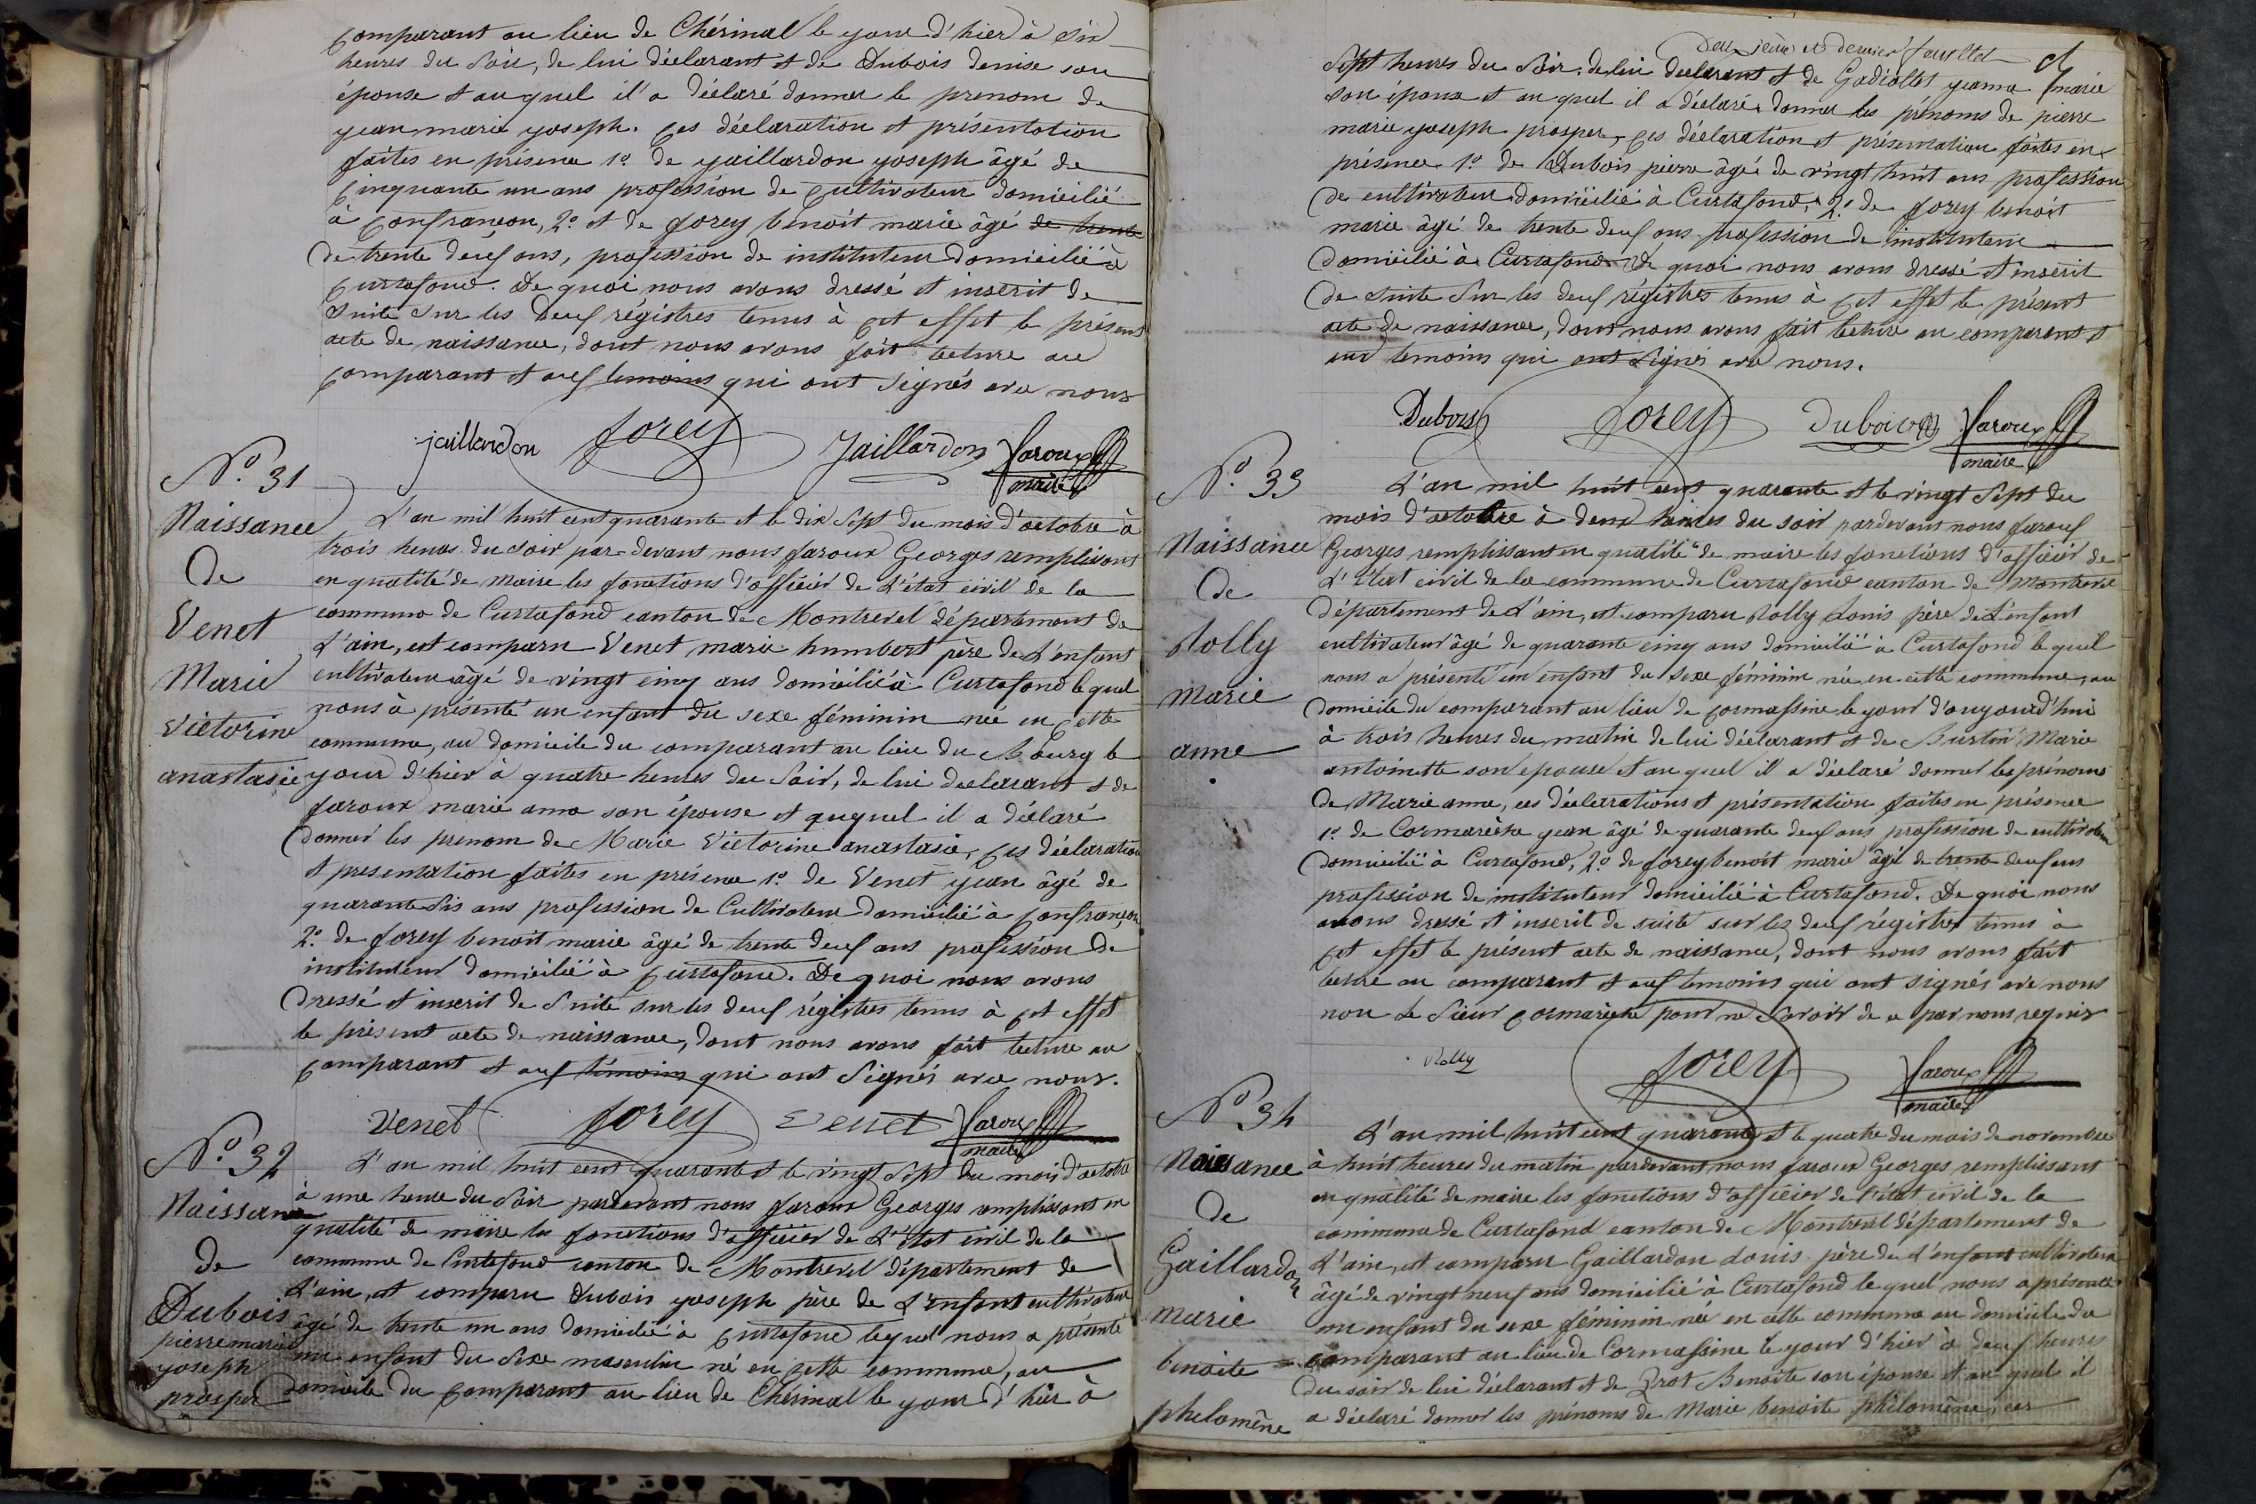 comparant au lieu de Chérinal le your d'hier à six
heures du soir, de lui déclarant et de Dubois denise son
épouse et au quel il a déclaré donner le prenom de
yean marie yoseph. ces déclaration et présentation
faites en présence 1o. de yaillardon yoseph âgé de
cinquante un ans profession de cultivateur domicilié
à Confrançon, 2o. et de forey benoit marie âgé de trente
de trente deuf ans, profession de instituteur domicilié à
Curtafond. De quoi nous avons dressé et inscrit de
suite sur les deuf régistres tenus à cet effet le présent
acte de naissance, dont nous avons fait lecture au
comparant et auf temoins qui ont signés avec nous
jaillardon forey Jaillardon faroux
maire
No. 31
Naissance
de
Venet
Marie
Victorine
anastasie
L'an mil huit cent quarante et le dix sept du mois d'octobre à
trois heures du soir par-devant nous faroux Georges remplissant
en qualité de maire les fonctions d'officier de l'état civil de la
commune de Curtafond canton de Montrevel département de
L'ain, est comparu Venet marie humbert père de L'enfant
cultivateur âgé de vingt cinq ans domicilié à Curtafond le quel
nous à présenté un enfant du sexe féminin née en cette
commune, au domicile du comparant au lieu du Bourg le
your d'hier à quatre heures du soir, de lui déclarant et de
faroux marie anne son épouse et auquel il a déclaré
donner les prenom de Marie Victorine anastasie, ces déclaration
et presentation faites en présence 1o. de Venet yean âgé de
quarante sis ans profession de Cultivateur domicilié à Confrançon,
2o. de forey benoit marie âgé de trente deuf ans profession de
instituteur domicilié à Curtafond. De quoi nous avons
dressé et inscrit de suite sur les deuf régistres tenus à cet effet
le présent acte de naissance, dont nous avons fait lecture au
comparant et auf témoins qui ont signés avec nous.
Venet forey Venet faroux
maire
No. 32
Naissance
de
Dubois
pierre marie
yoseph
prosper
L'an mil huit cent quarante et le vingt sept du mois d'octobre
à une heure du soir pardevant nous faroux Georges remplissant en
qualité de maire les fonctions d'officier de L'état civil de la
commune de Curtafond canton de Montrevel département de
L'ain, et comparu Dubois yoseph père de L'enfant cultivateur
âgé de trente un ans domicilié à Curtafond lequel nous a présenté
un enfant du sexe masculin né en cette commune, au
domicile du comparant au lieu de Chérinal le your d'hier à
Deuxième et dernier feuillet
sept heures du soir, de lui déclarant et de Gadiollet yeanne marie
son épouse et au quel il a déclaré donner les prénoms de pierre
marie yoseph prosper, ces déclaration et présentation faites en
présence 1o. de Dubois pierre âgé de vingt huit ans profession
de cultivateur domicilié à Curtafond, 2o. de forey benoit
marie âgé de trente deuf ans profession de instituteur
domicilié à Curtafond. De quoi nous avons dressé et inscrit
de suite sur les deuf régistres tenus à cet effet le présent
acte de naissance, dont nous avons fait lecture au comparant et
aux temoins qui ont signés avec nous.
Dubois forey Dubois faroux
maire
No. 33
Naissance
de
Rolly
marie
anne
L'an mil huit cent quarante et le vingt sept du
mois d'octobre à deux heures du soir pardevant nous farouf
Georges remplissant en qualité de maire les fonctions d'officier de
L'état civil de la commune de Curtafond canton de Montrevel
département de L'ain, est comparu Rolly Louis père de L'enfant
cultivateur âgé de quarante cinq ans domicilié à Curtafond le quel
nous a présenté un enfant du sexe féminin née en cette commune, au
domicile du comparant au lieu de Cormassine le your d'auyourd'hui
à trois heures du matin de lui déclarant et de Burtin Marie
antoinette son epouse et au quel il a déclaré donner les prénoms
de Marie anne, ces déclarations et présentation faites en présence
1o. de Cormarèche yean âgé de quarante deuf ans profession de cultivateur
domicilié à Curtafond, 2o. de forey benoit marie âgé de trente deuf ans
profession de instituteur domicilié à Curtafond. De quoi nous
avons dressé et inscrit de suite sur les deuf régistres tenus à
cet effet le présent acte de naissance, dont nous avons fait
lecture au comparant et auf temoins qui ont signés avec nous
non Le Sieur Cormarèche pour ne savoir de ce par nous requis
Rolly forey faroux
maire
No 34
Naissance
de
Gaillardon
marie
benoite
phelomène
L'an mil huit cent quarante et le quatre du mois de novembre
à huit heures du matin pardevant nous faroux Georges remplissant
en qualité de maire les fonctions d'officier de l'état civil de la
commune de Curtafond canton de Montrevel département de
L'ain, est comparu Gaillardon Louis père de L'enfant cultivateur
âgé de vingt neuf ans domicilié à Curtafond le quel nous a présenté
un enfant du sexe féminin née en cette commune au domicile du
comparant au lieu de Cormassine le your d'hier à deuf heures
du soir de lui déclarant et de Prost Benoite son épouse et au quel il
a déclaré donner les prénoms de Marie benoite philomène, ces